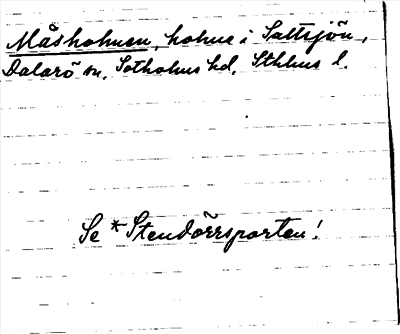 Måsholmen, holme i Saltsjön,
Dalarö sn, Sotholms hd, Sthlms l.
Se *Stendörrsporten!